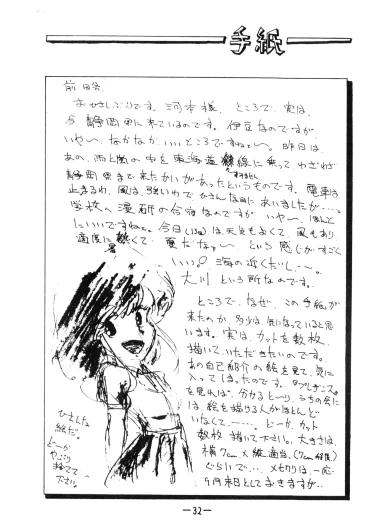 手紙
前略
おひさしぶりです。河本様、ところで、実は、
今静岡県に来ているのです。伊豆なのですが、
いや〜、なかなかいいところですねェ〜。昨日は、
あの、雨と風の中を東海道線に乗って、わざわざ
静岡県まで来たかいがあったというものです。電車は、
止まるわ、風は、強いわでひさんな目にあいましたが…。
学校の漫研の合宿なのですが、いや〜、ほんと
にいいですねェ。今日は、天気もよくて、風もあり
適度に暑くて、夏だなァ〜という感じがすごく
いい。海の近くだし〜。
大川という所なのです。
ところで、なぜ、この手紙が
来たのか多少は、気になっていると思
います。実は、カットを数枚、
描いていただきたいのです。
あの自己紹介の絵を見て、気に
入ってしまったのです。
を見れば、分かると〜り、うちの会に
は、絵を描ける人がほとんど
いなくて…。ど〜か、カット
数枚描いて下さい。大きさは、
横7cm×縦適当、(7cm程度)
ぐらいで…、〆切りは、一応
9月末日としておきますが…
ひさんな
絵だ。
ど〜か
やぶり
捨てて
下さい。
—32—